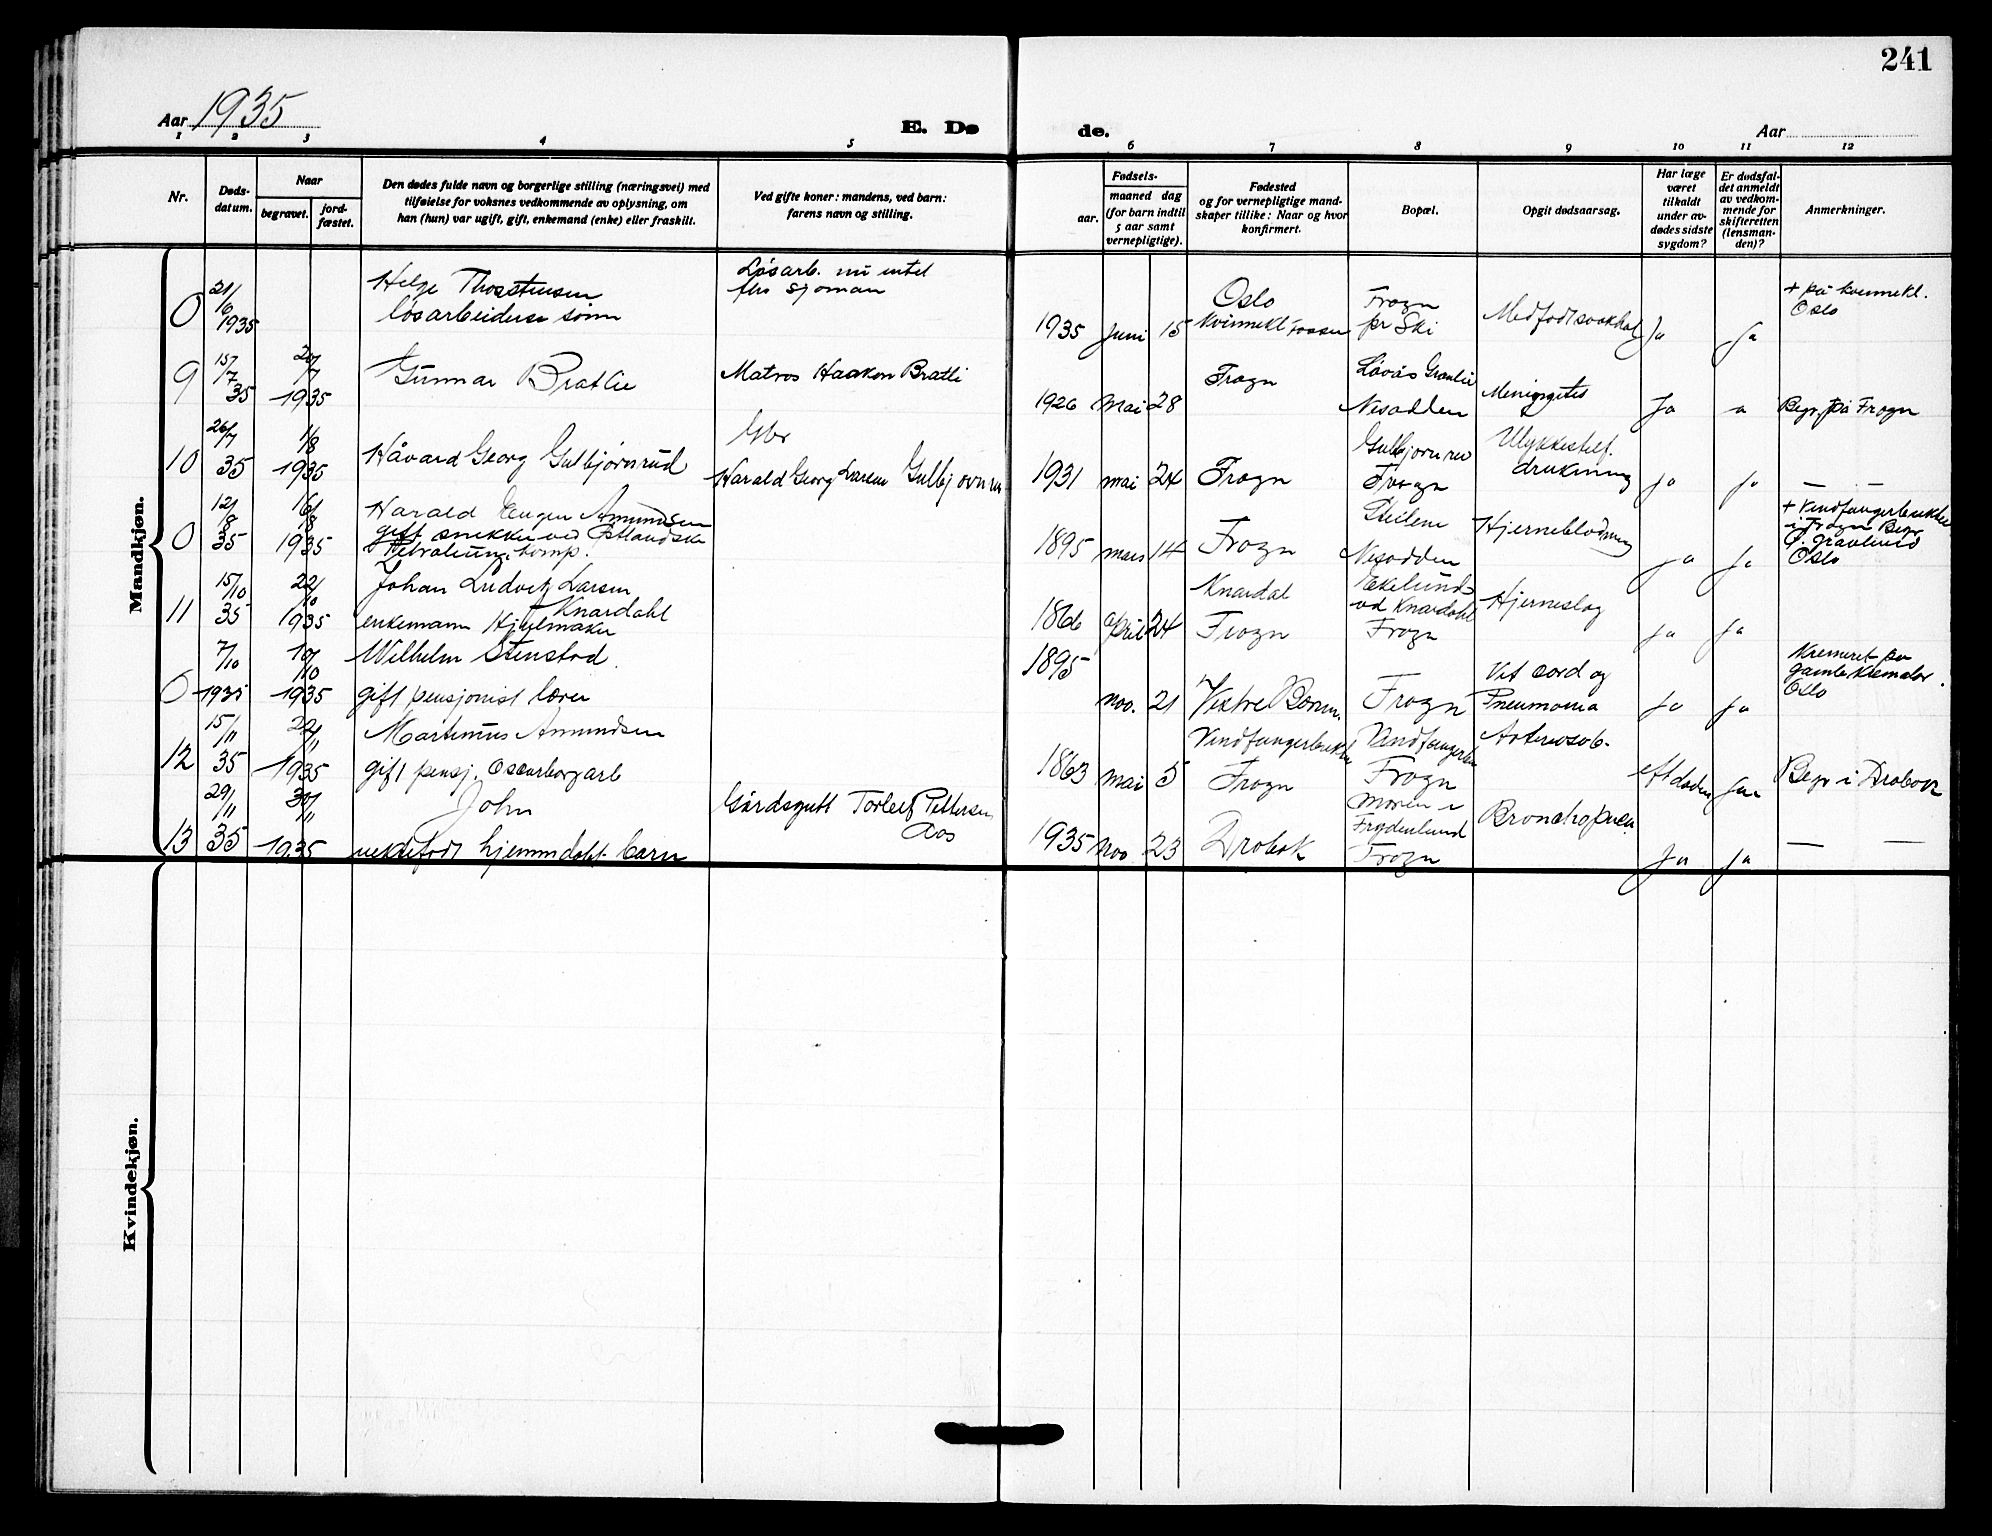 241
Aar 1935
E. Dø
de.
Aar
1 2 3 4 5 6 7 8 9 10 11 12
Nr.
Døds-
datum.
Naar
begravet.
jord-
fæstet.
Den dødes fulde navn og borgerlige stilling (næringsvei) med
tilføielse for voksnes vedkommende av oplysning, om
han (hun) var ugift, gift, enkemand (enke) eller fraskilt.
Ved gifte koner: mandens, ved barn:
farens navn og stilling.
Fødsels-
aar.
maaned dag
(for barn indtil
5 aar samt
vernepligtige).
Fødested
og for vernepligtige mand-
skaper tillike: Naar og hvor
konfirmert.
Bopæl.
Opgit dødsaarsag.
Har læge
været
tilkaldt
under av-
dødes sidste
sygdom?
Er dødsfal-
det anmeldt
av vedkom-
mende for
skifteretten
(lensman-
den)?
Anmerkninger.
Mandkjøn.
0 21/6 1935
Helge Thorstensen
løsarbeiders sønn
Løsarb. nu intet
før sjøman
1935 Juni 15
Oslo
Kvinnekl.
Frogn
pr Ski
Ja Ja
+ på kvinnekl.
Oslo
9 15/7 35
20/7 1935
Gunnar Bratlie
Matros Haakon Bratli
1926 Mai 28
Frogn
Nesodden
Ja
Begr. på Frogn
10 26/7 35
1/8 1935
Håvard Georg Gulbjørnrud
Gbr
Harald Georg Larsen
1931 mai 24
Frogn
Frogn
drukning
Ja Ja
— —
0 12/8 35
16/8 1935
Harald Eugen Amundsen
gift snekker ved Østlandske
Petroleums comp.
1895 mars 14
Frogn
Steilene
Nesodden
Hjerneblødning
Ja Ja
i Frogn Begr
Ø. gravlund
Oslo
11 15/10 35
22/10 1935
Johan Ludvig Larsen
Knardahl
enkemann Hjulmaker
1866 april 24
Knardal
Frogn
Ekelund
vd Knardahl
Frogn
Hjerneslag
Ja Ja
0 7/10 1935
10/10 1935
Wilhelm Stenstad
gift pensjonist lærer
1895
nov. 21
Frogn
Vit. cord og
Pneumonia
Ja Ja
Kremeret på
gamle Kremator.
Oslo
12 15/11 35
22/11 1935
Martinius Amundsen
gift pensj. Oscarborgarb
1863 mai 5
Vindfangerbukten
Frogn
Frogn
eft døden
Begr i Drøbak
13 29/11 35
30/11 1935
John
uektefødt hjemmdøbt barn
Gårdsgutt Torleif Pettersen
Aas
1935 Nov 23
Drøbak
Moren i
Frydenlund
Frogn
Ja Ja
— —
Kvindekjøn.